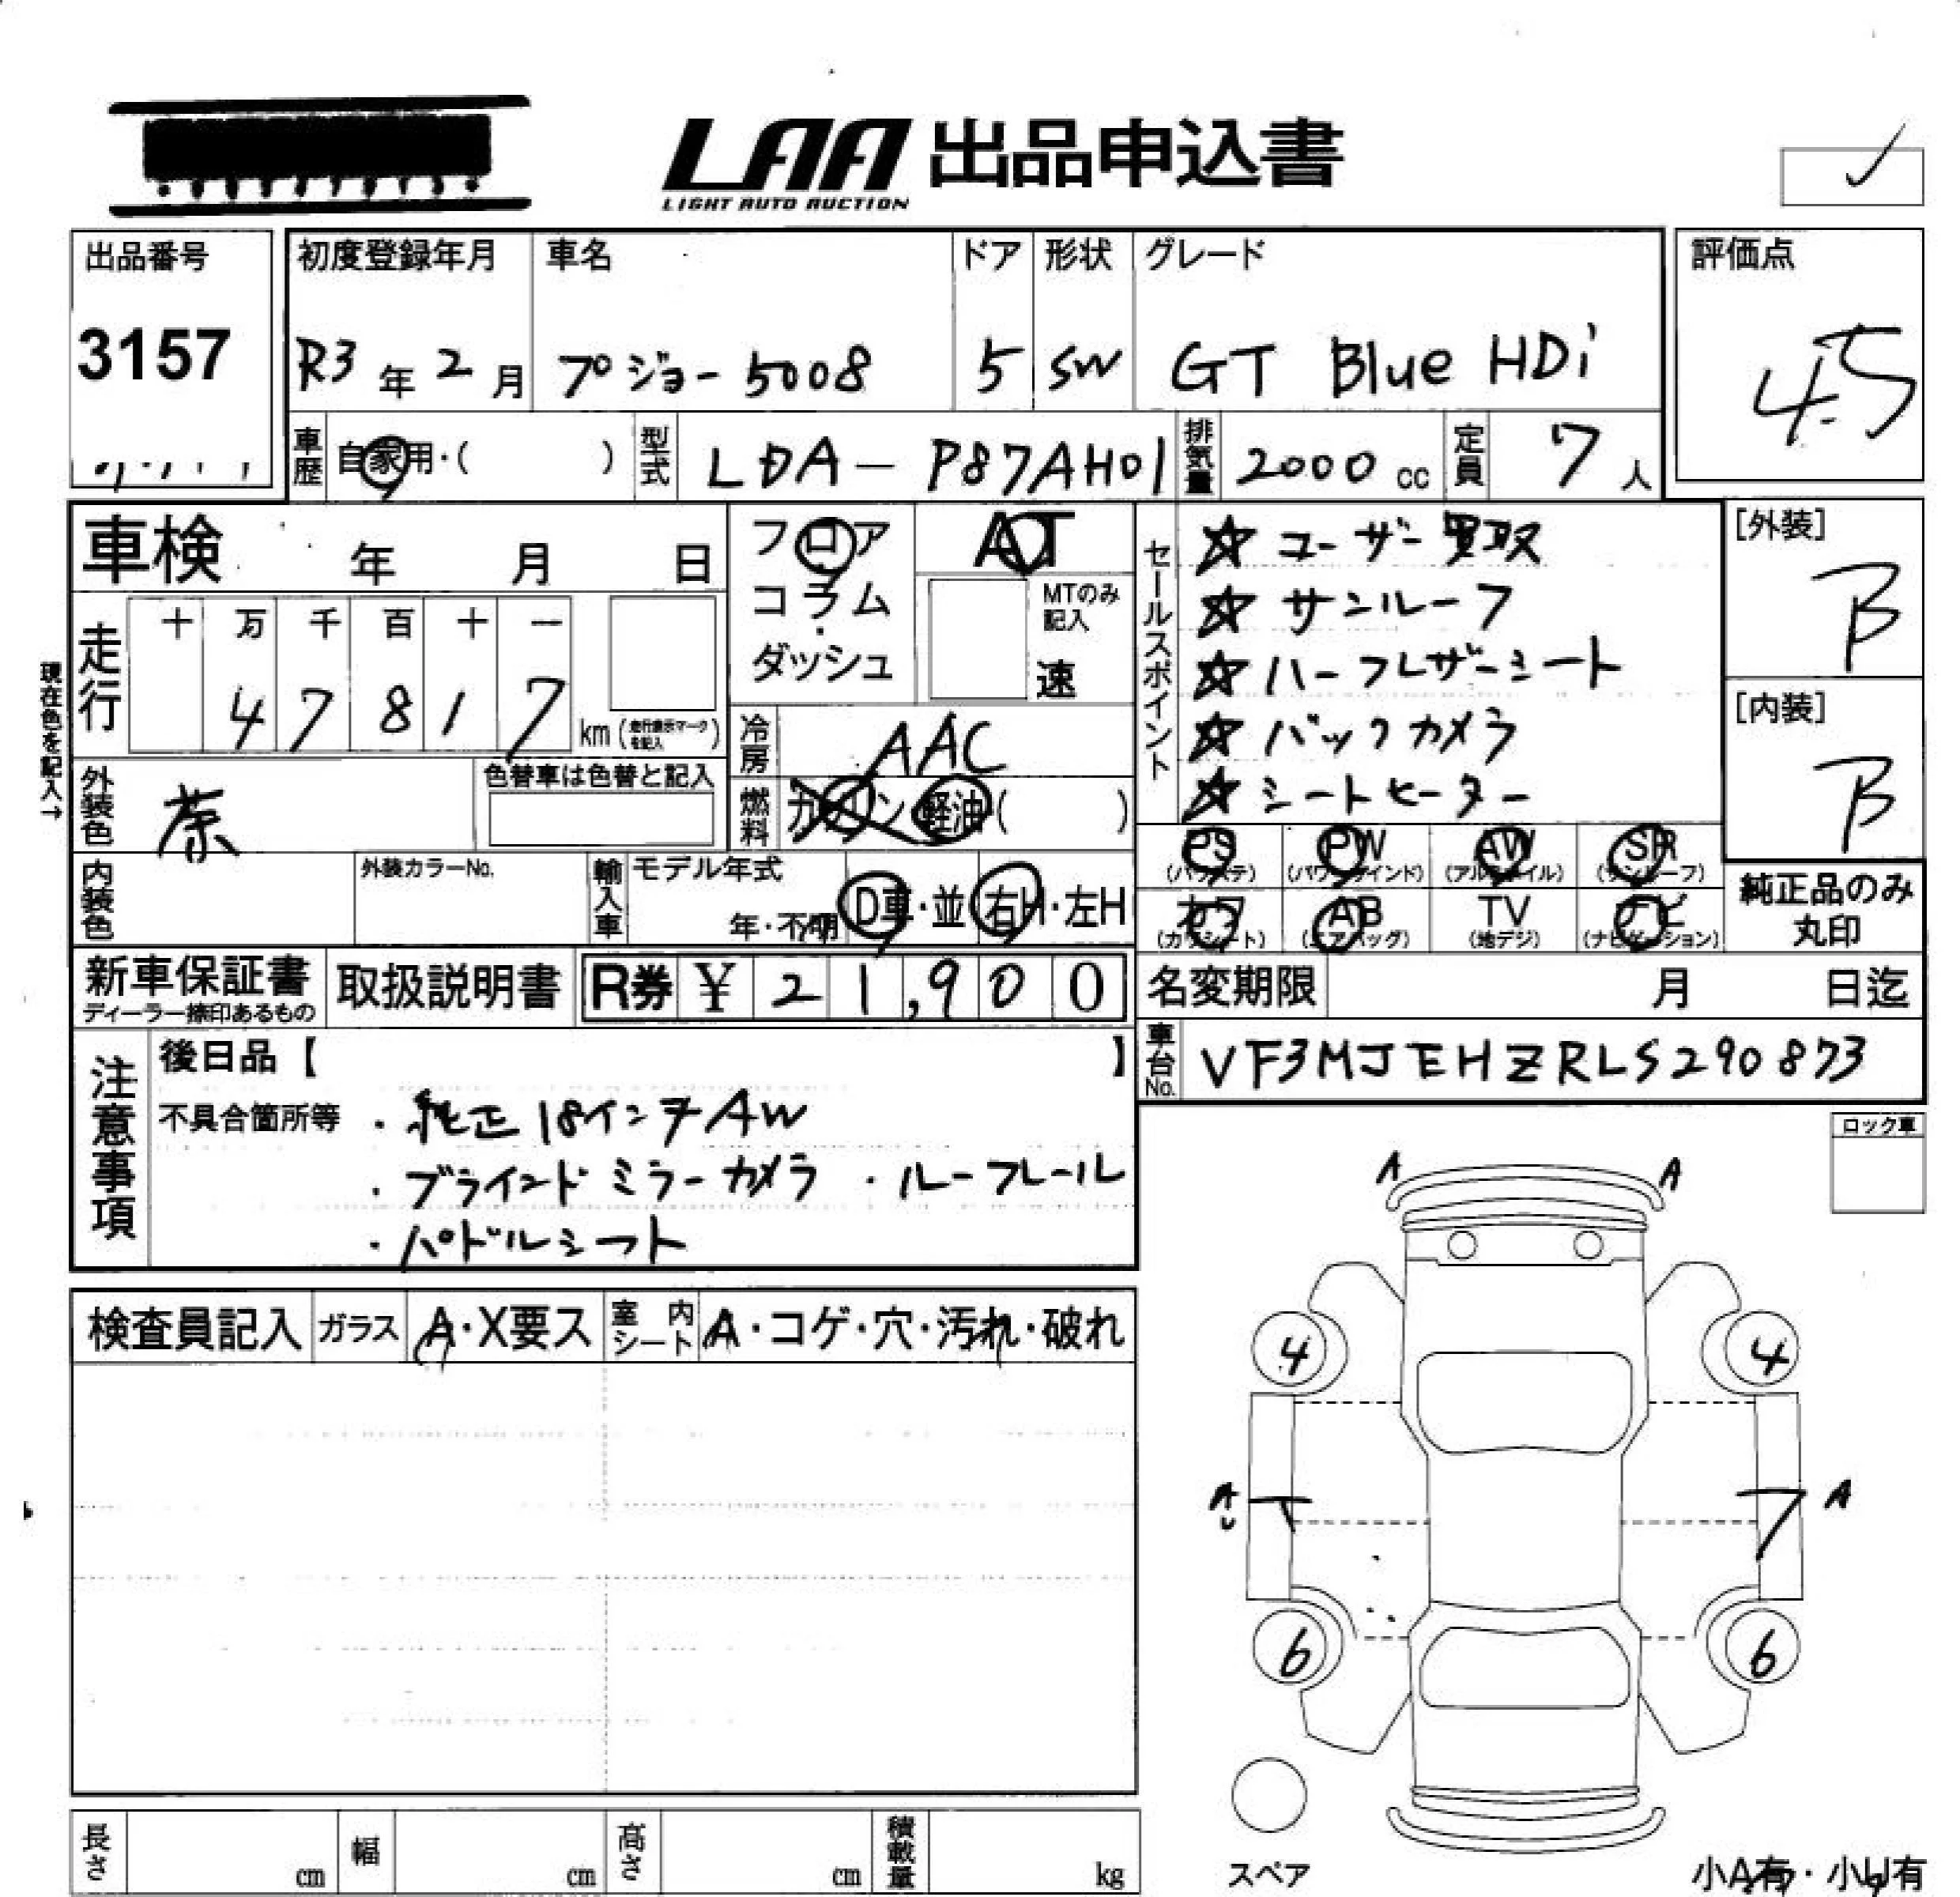 LAA 出品申込書
LIGHT AUTO AUCTION
出品番号
3157
初度登録年月 車名 ドア 形状 グレード
R3年2月 プジョー5008 5 SW GT Blue HDi
評価点
4.5
車歴 自家用・( ) 型式 LDA-P87AH01 排気量 2000cc 定員 7人
車検 年 月 日
フロア
コラム・
ダッシュ
AT
MTのみ記入
速
走行 十 万 千 百 十 一
4 7 8 1 7 km(走行表示マークを記入)
現在色を記入→
外装色 茶 色替車は色替と記入
冷房 AAC
燃料 ガソリン 軽油( )
内装色 外装カラーNo.
輸入車 モデル年式 年・不明 D車・並 右H・左H
セールスポイント
☆ユーザー買取
☆サンルーフ
☆ハーフレザーシート
☆バックカメラ
☆シートヒーター
[外装]
B
[内装]
B
PS (パワステ) PW (パワーウインド) AW (アルミホイル) SR (サンルーフ)
カワ (カワシート) AB (エアバッグ) TV (地デジ) ナビ (ナビゲーション)
純正品のみ
丸印
新車保証書
ディーラー捺印あるもの
取扱説明書
R券 ¥21,900
名変期限 月 日迄
車台No. VF3MJEHZRLS290873
注意事項
後日品【 】
不具合箇所等 ・純正18インチAW
・ブラインドミラーカメラ ・ルーフレール
・パドルシフト
ロック車
検査員記入 ガラス A・X要ス 室内シート A・コゲ・穴・汚れ・破れ
A A
4 4
A A
6 6
スペア
小A有・小U有
長さ cm 幅 cm 高さ cm 積載量 kg